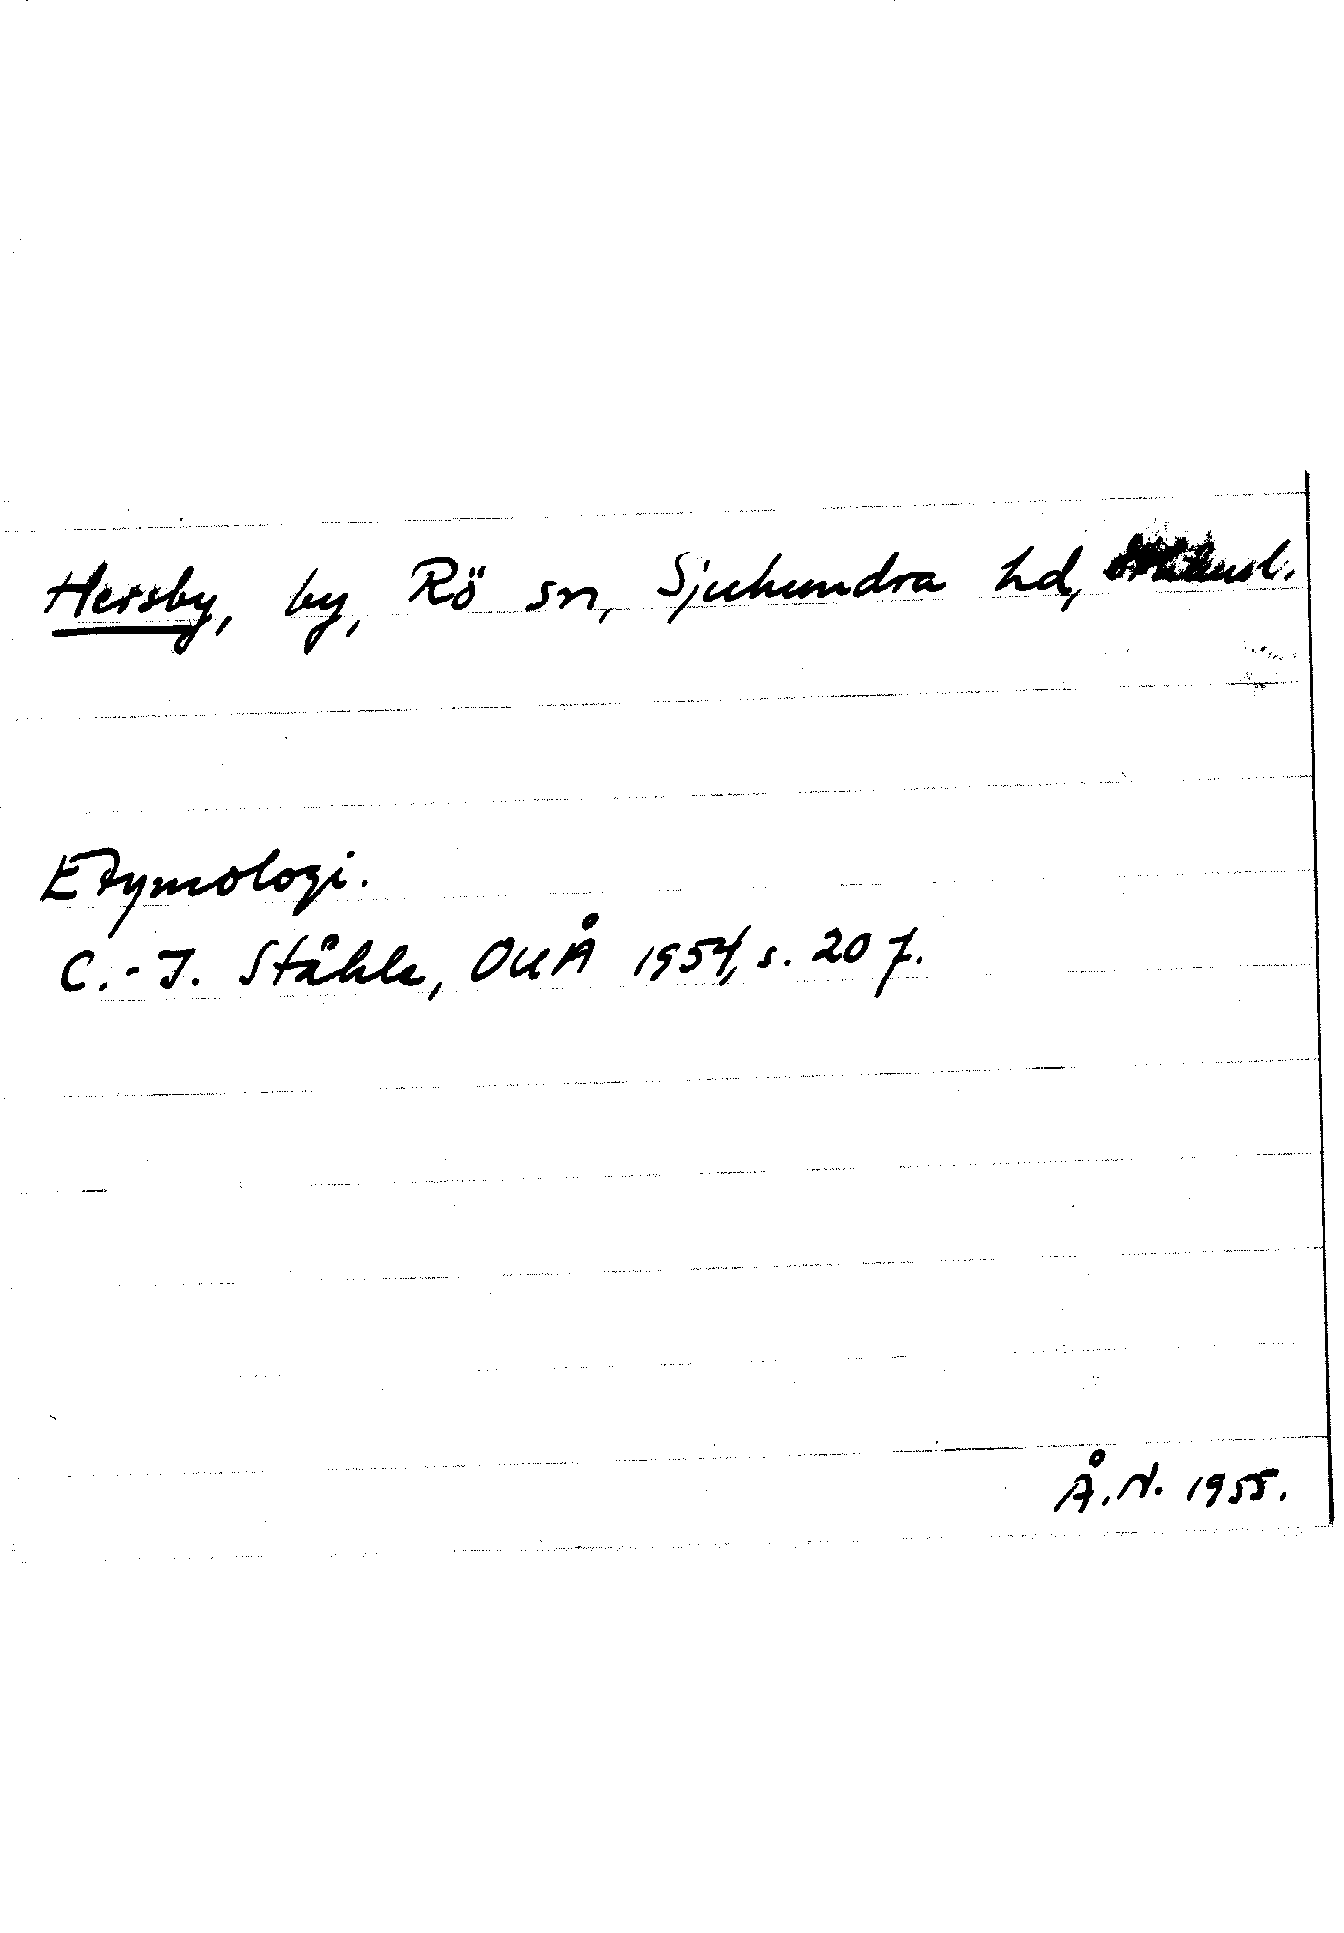 Hersby, by, Rö sn, Sjuhundra hd,
Etymologi.
C.-I. Ståhle, OUÅ 1954, s. 20 f.
Å.N. 1955.